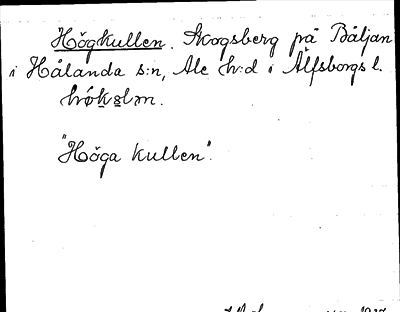 Högkullen. Skogsberg på Båljan
i Hålanda s:n, Ale h:d i Älfsborgs l.
"Höga kullen".